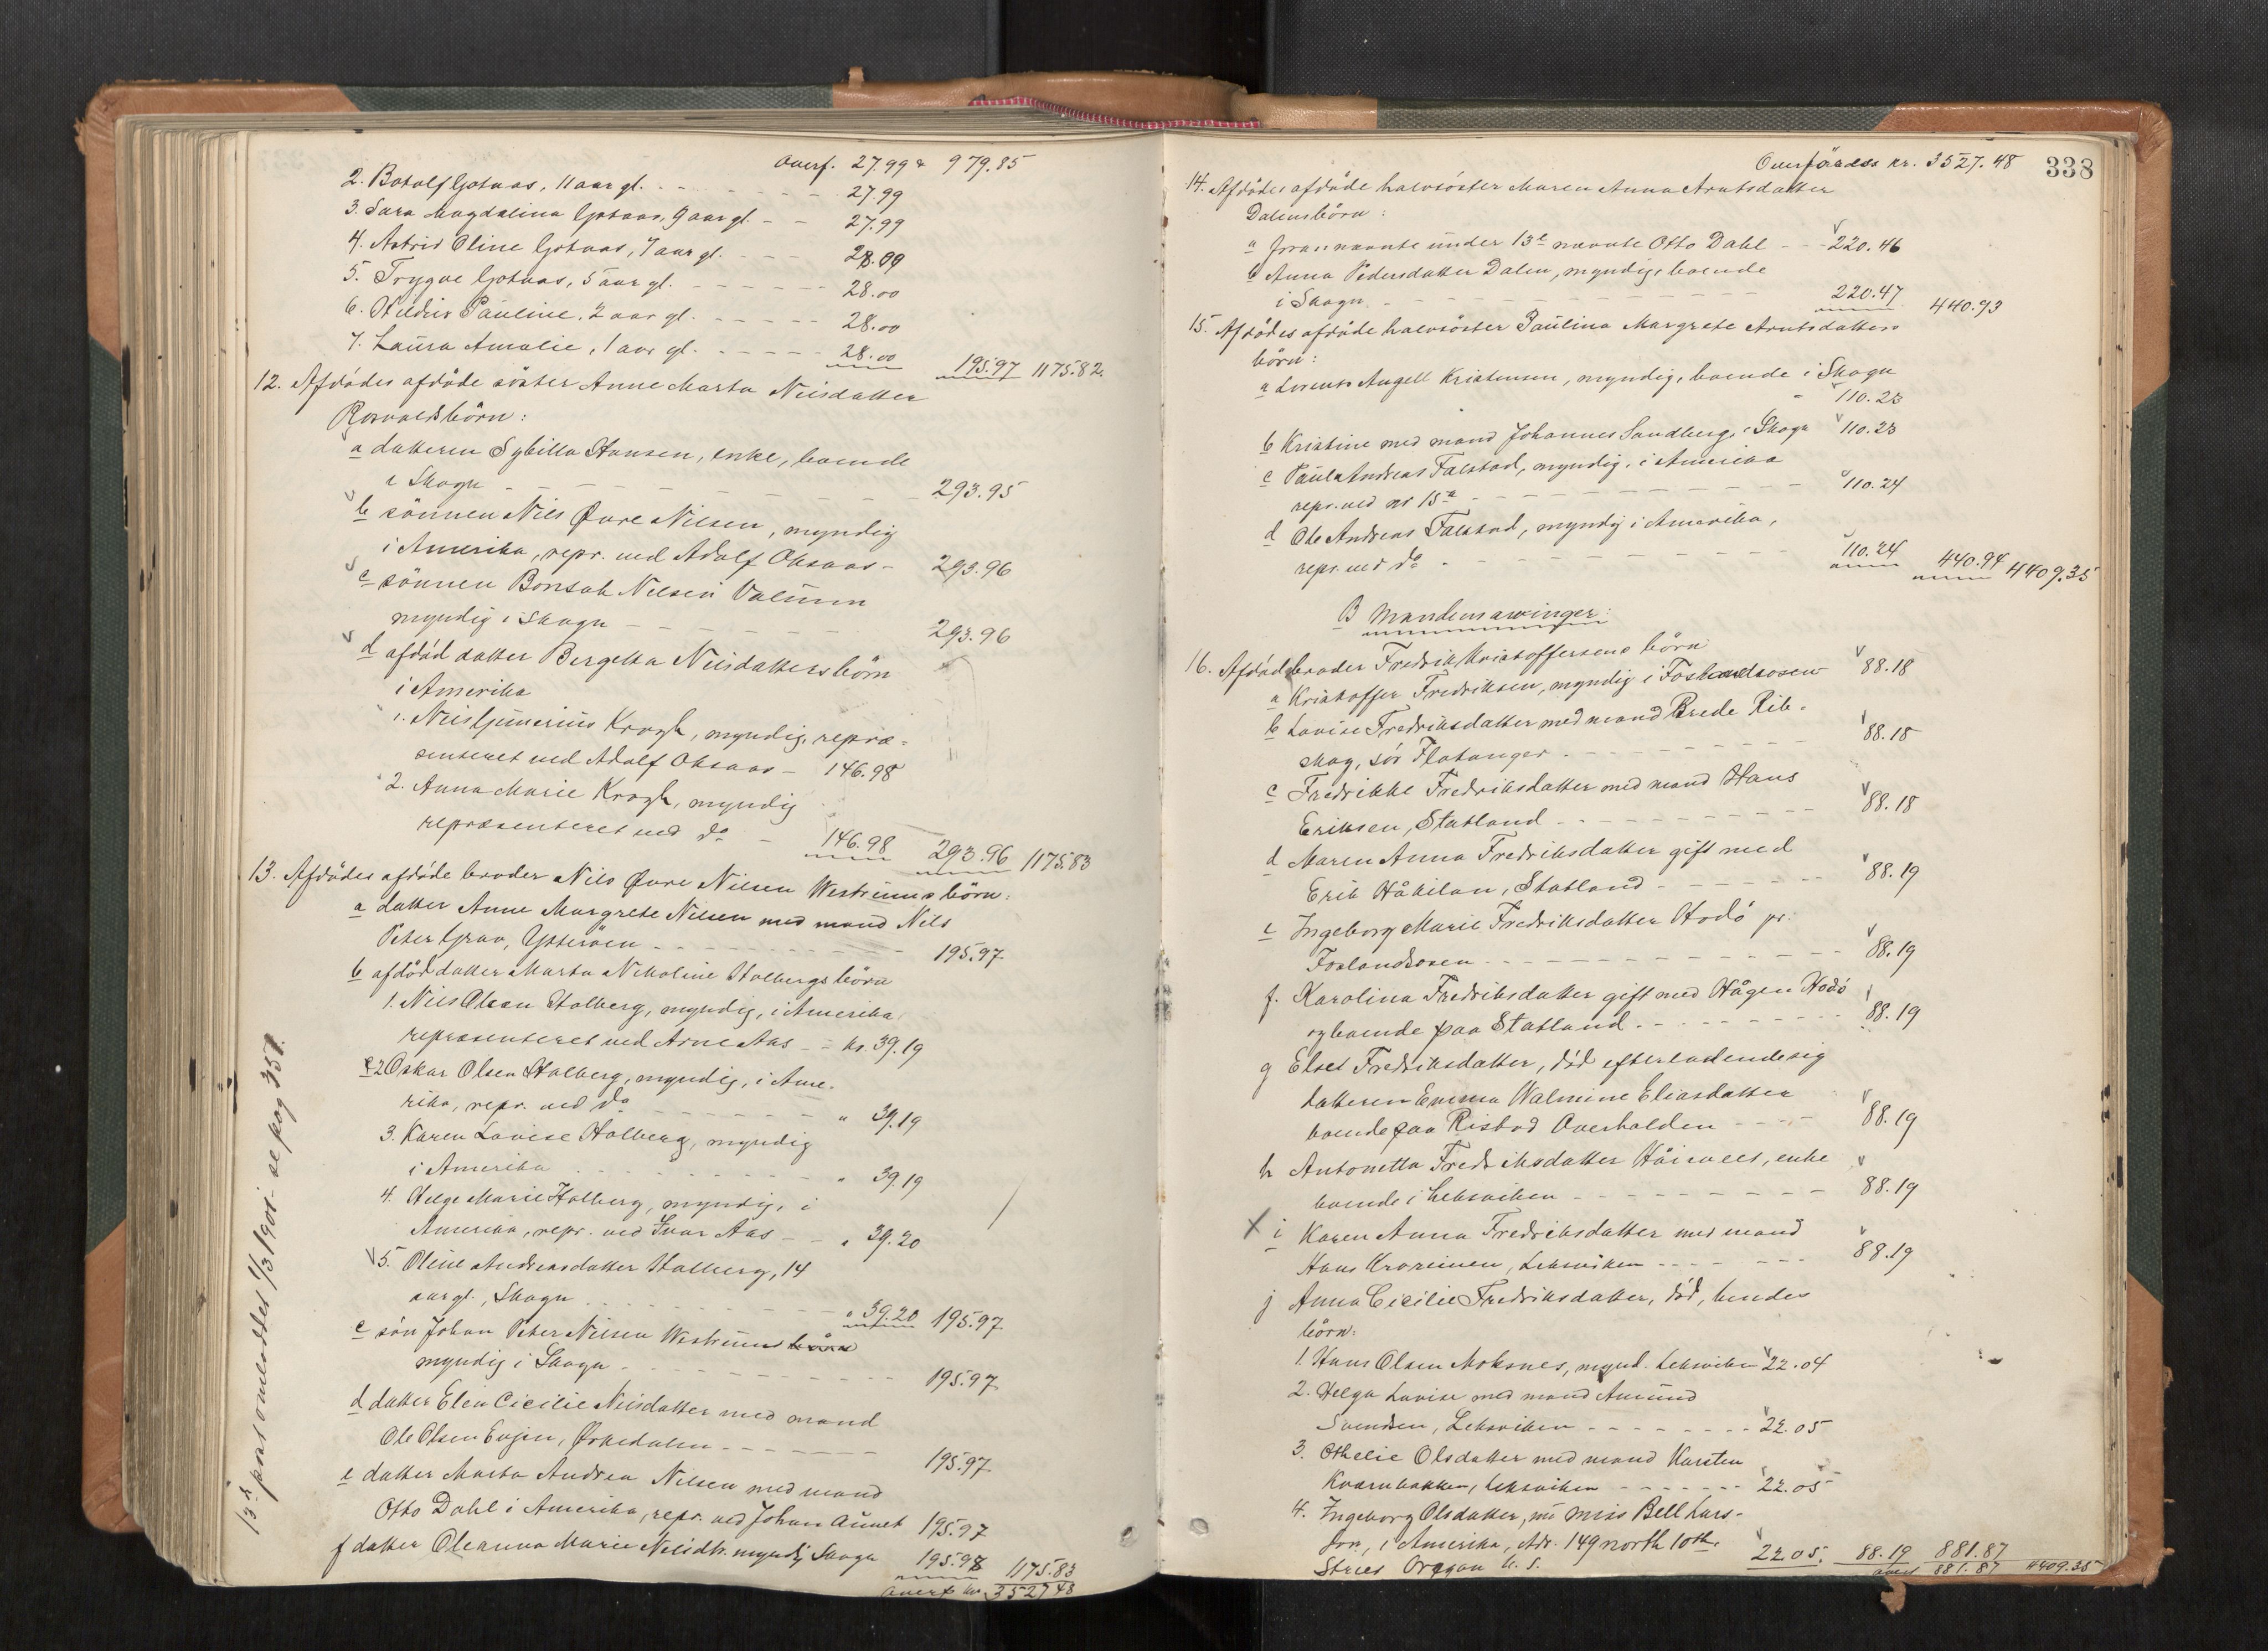 Overf. 27.99 979.85
2. Botolf Gotaas, 11 aar gl. 27.99
3. Sara Magdalina Gotaas, 9 aar gl. 27.99
4. Astrid Oline Gotaas, 7 aar gl. 28.00
5. Trygve Gotaas, 5 aar gl. 28.00
6. Hildur Pauline, 2 aar gl. 28.00
7. Laura Amalie, 1 aar gl. 28.00 195.97 1175.82
12. Afdødes afdøde søster Anne Marta Nilsdatter
Rosvolds børn:
a datteren Sybilla Hansen, enke, boende
i Skogn 293.95
b sønnen Nils Øvre Nilsen, myndig
i Amerika, repr. ved Adolf Oksaas 293.96
c sønnen Bonsak Nilsen Valum
myndig i Skogn 293.96
d afdød datter Bergitta Nilsdatters børn
i Amerika
1. Nils Gunerius Krogh, myndig, repræ-
senteret ved Adolf Oksaas 146.98
2. Anna Marie Krogh, myndig
repræsenteret ved do 146.98 293.96 1175.83
13. Afdødes afdøde broder Nils Øvre Nilsen Westrums børn:
a datter Anne Margrete Nilsen med mand Nils
Peter Grav, Ytterøen 195.97
b afdød datter Marta Nikoline Holbergs børn
1. Nils Olsen Holberg, myndig, i Amerika,
repræsenteret ved Arne Aas kr. 39.19
2 Oskar Olsen Holberg, myndig, i Ame-
rika, repr. ved do " 39.19
3. Karen Lovise Holberg, myndig
i Amerika " 39.19
4. Helge Marie Holberg, myndig, i
Amerika, repr. ved Ivar Aas " 39.20
5. Oline Andreasdatter Holberg, 14
aar gl., Skogn " 39.20 195.97
c søn Johan Peter Nilsen Westrums børn
myndig i Skogn 195.97
d datter Elen Cicilie Nilsdatter med mand
Ole Olsen Evjen, Ørkedalen 195.97
e datter Marta Andrea Nilsen med mand
Otto Dahl i Amerika, repr. ved Johan Aunet 195.97
f datter Oleanna Marie Nilsdtr. myndig Skogn 195.98 1175.83
Overf kr. 3527.48
se pag 351.
338
Overføres kr. 3527.48
14. Afdødes afdøde halvsøster Maren Anna Arntsdatter
Dalens børn:
a foran nævnte under 13e nævnte Otto Dahl 220.46
b Anna Pedersdatter Dalen, myndig, boende
i Skogn 220.47 440.93
15. Afdødes afdøde halvsøster Paulina Margrete Arntsdatters
børn:
a Lorents Angell Kristensen, myndig, boende i Skogn
110.23
b Kristine med mand Johannes Sandberg, Skogn 110.23
c Paul Andreas Falstad, myndig, i Amerika
repr. ved nr 15a 110.24
d Ole Andreas Falstad, myndig i Amerika,
repr. ved do 110.24 440.94 4409.35
B Mandens arvinger:
16. Afdød broder Fredrik Kristoffersens børn
a Kristoffer Fredriksen, myndig i Foslandsosen 88.18
b Lovise Fredriksdatter med mand Brede Rib-
skog, sør Flatanger 88.18
c Fredrikke Fredriksdatter med mand Hans
Eriksen, Statland 88.18
d Maren Anna Fredriksdatter gift med
Erik Håkilan, Statland 88.19
e Ingeborg Marie Fredriksdatter Hodø pr.
Foslandsosen 88.19
f. Karolina Fredriksdatter gift med Hågen Hodø
og boende paa Statland 88.19
g Elset Fredriksdatter, død efterladende sig
datteren Emma Walmine Eliasdatter
boende paa Risbod Overhalden 88.19
h Antonetta Fredriksdatter, enke
boende i Leksviken 88.19
i Karen Anna Fredriksdatter med mand
Hans Leksviken 88.19
j Anna Cicilie Fredriksdatter, død, hendes
børn:
1. Hans Olsen Moksnes, mynd. Leksviken 22.04
2. Helga Lovise med mand Amund
Svendsen, Leksviken 22.05
3. Othelie Olsdatter med mand Karsten
Kvernbakken, Leksviken 22.05
4. Ingeborg Olsdatter, nu miss Bell Lars-
son, i Amerika, Adr. 149 north 10th.
Street Oregon U. S. 22.05. 88.19 881.87
881.87 4409.35